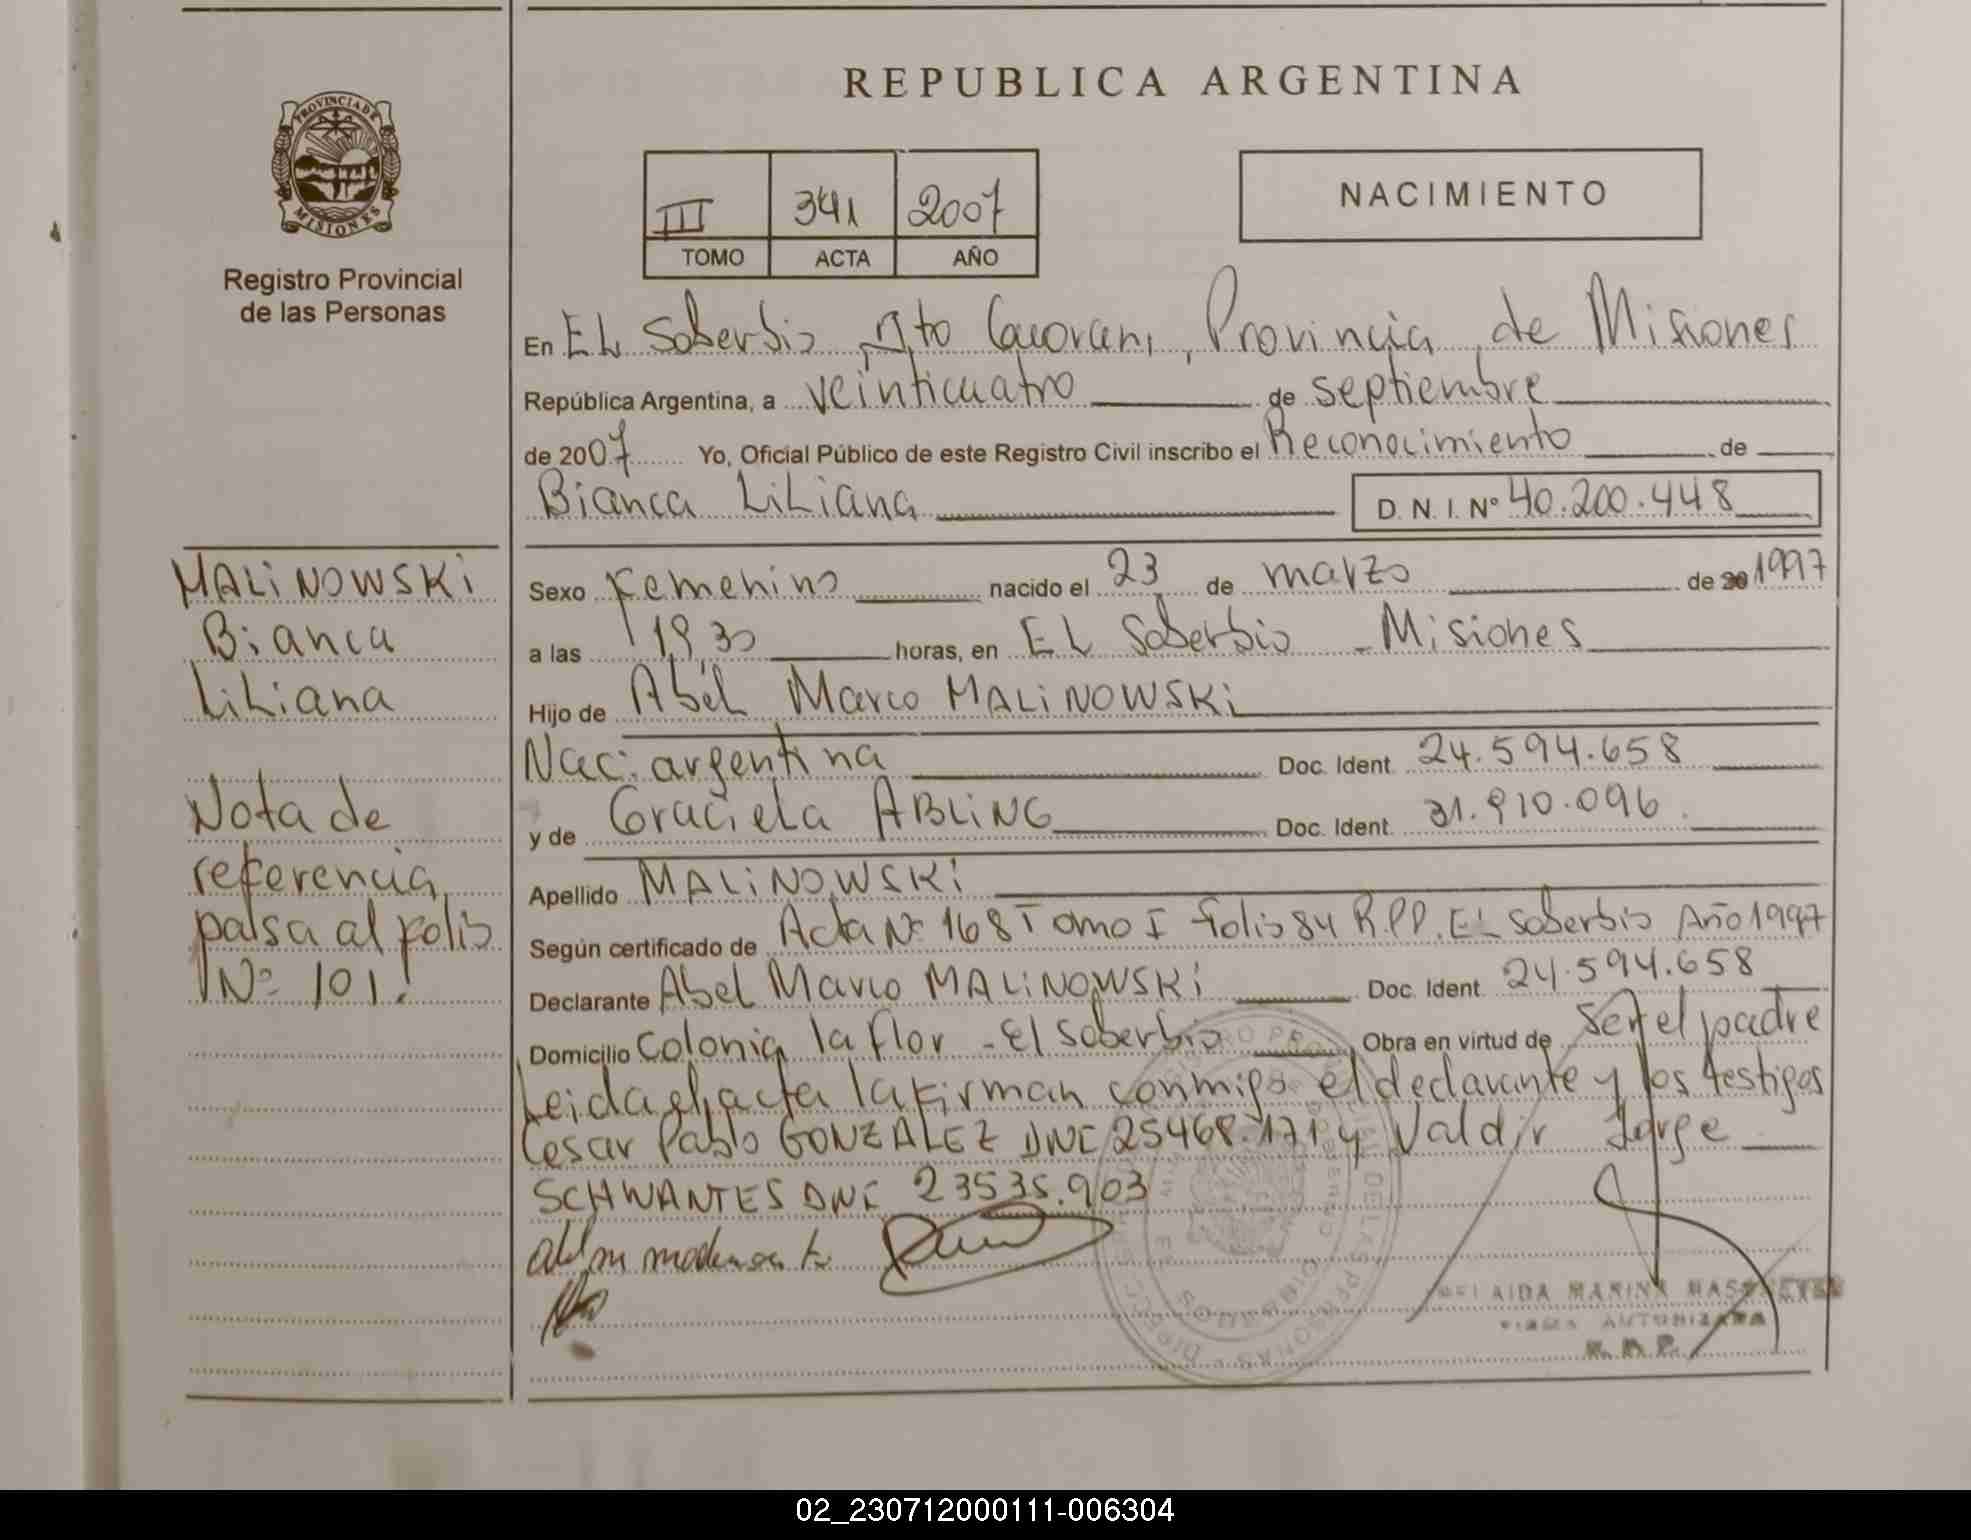 REPUBLICA ARGENTINA
PROVINCIA DE
MISIONES
Registro Provincial
de las Personas
III 341 2007
TOMO ACTA AÑO
NACIMIENTO
En EL Soberbio, Dto Guarani, Provincia de Misiones
República Argentina, a veinticuatro de septiembre
de 2007 Yo, Oficial Público de este Registro Civil inscribo el Reconocimiento de
Bianca Liliana D. N. I. Nº 40.200.448
MALINOWSKI
Bianca
Liliana
Nota de
referencia
passa al folio
Nº 101.
Sexo Femenino nacido el 23 de marzo de 1997
a las 19,30 horas, en EL Soberbio - Misiones
Hijo de Abel Marco MALINOWSKI
Nac. argentina Doc. Ident. 24.594.658
y de Graciela ABLING Doc. Ident. 31.910.096.
Apellido MALINOWSKI
Según certificado de Acta Nº 168 Tomo I folio 84 R.P.P. EL Soberbio Año 1997
Declarante Abel Marco MALINOWSKI Doc. Ident. 24.594.658
Domicilio Colonia la flor - El Soberbio Obra en virtud de Ser el padre
Leida el acta la firman conmigo el declarante y los testigos
Cesar Pablo GONZALEZ DNI 25468.171 y Valdir Jorge
SCHWANTES DNI 23535.903
AIDA MARINA
FIRMA AUTORIZADA
R. P. P.
02_230712000111-006304